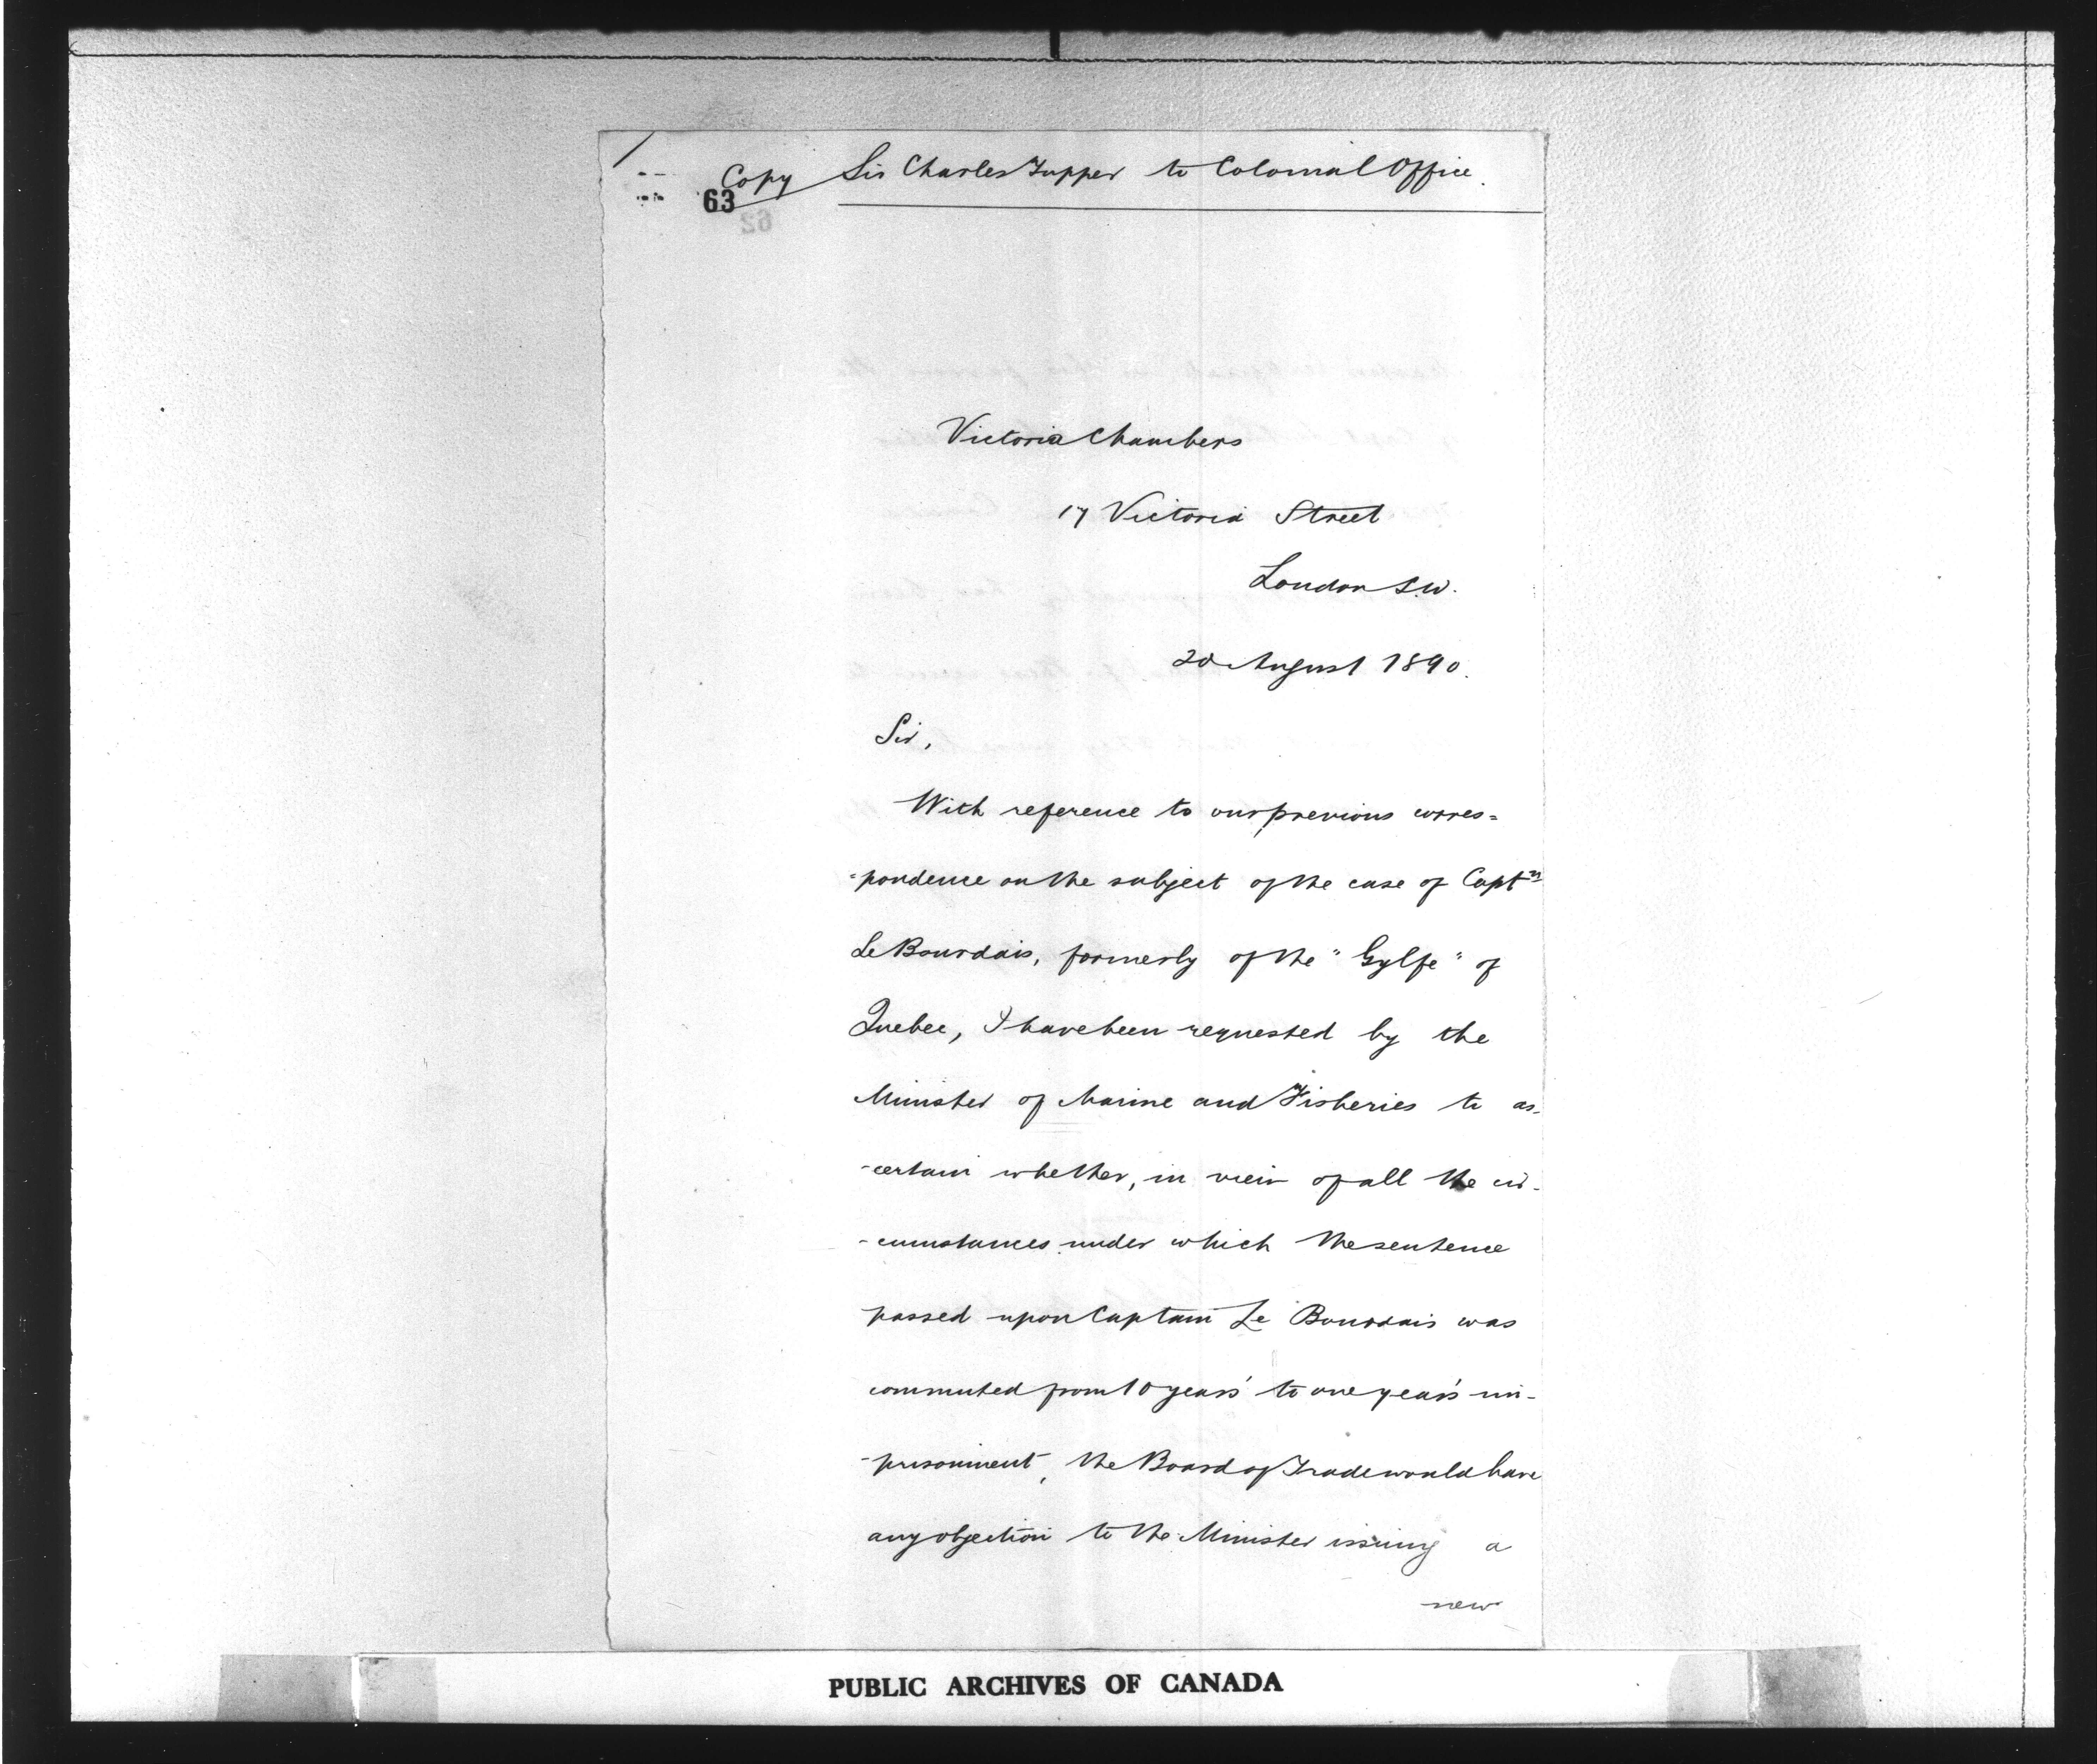 Copy Sir Charles Tupper to Colonial Office.
63
62
Victoria Chambers
17 Victoria Street
London S.W.
20 August 1890.
Sir,
With reference to our previous corres=
=pondence on the subject of the case of Captn
Le Bourdais, formerly of the "Gylfe" of
Quebec, I have been requested by the
Minister of Marine and Fisheries to as-
-certain whether, in view of all the cir-
-cumstances under which the sentence
passed upon Captain Le Bourdais was
commuted from 10 years' to one year's im-
-prisonment, the Board of Trade would have
any objection to the Minister issuing a
new
PUBLIC ARCHIVES OF CANADA